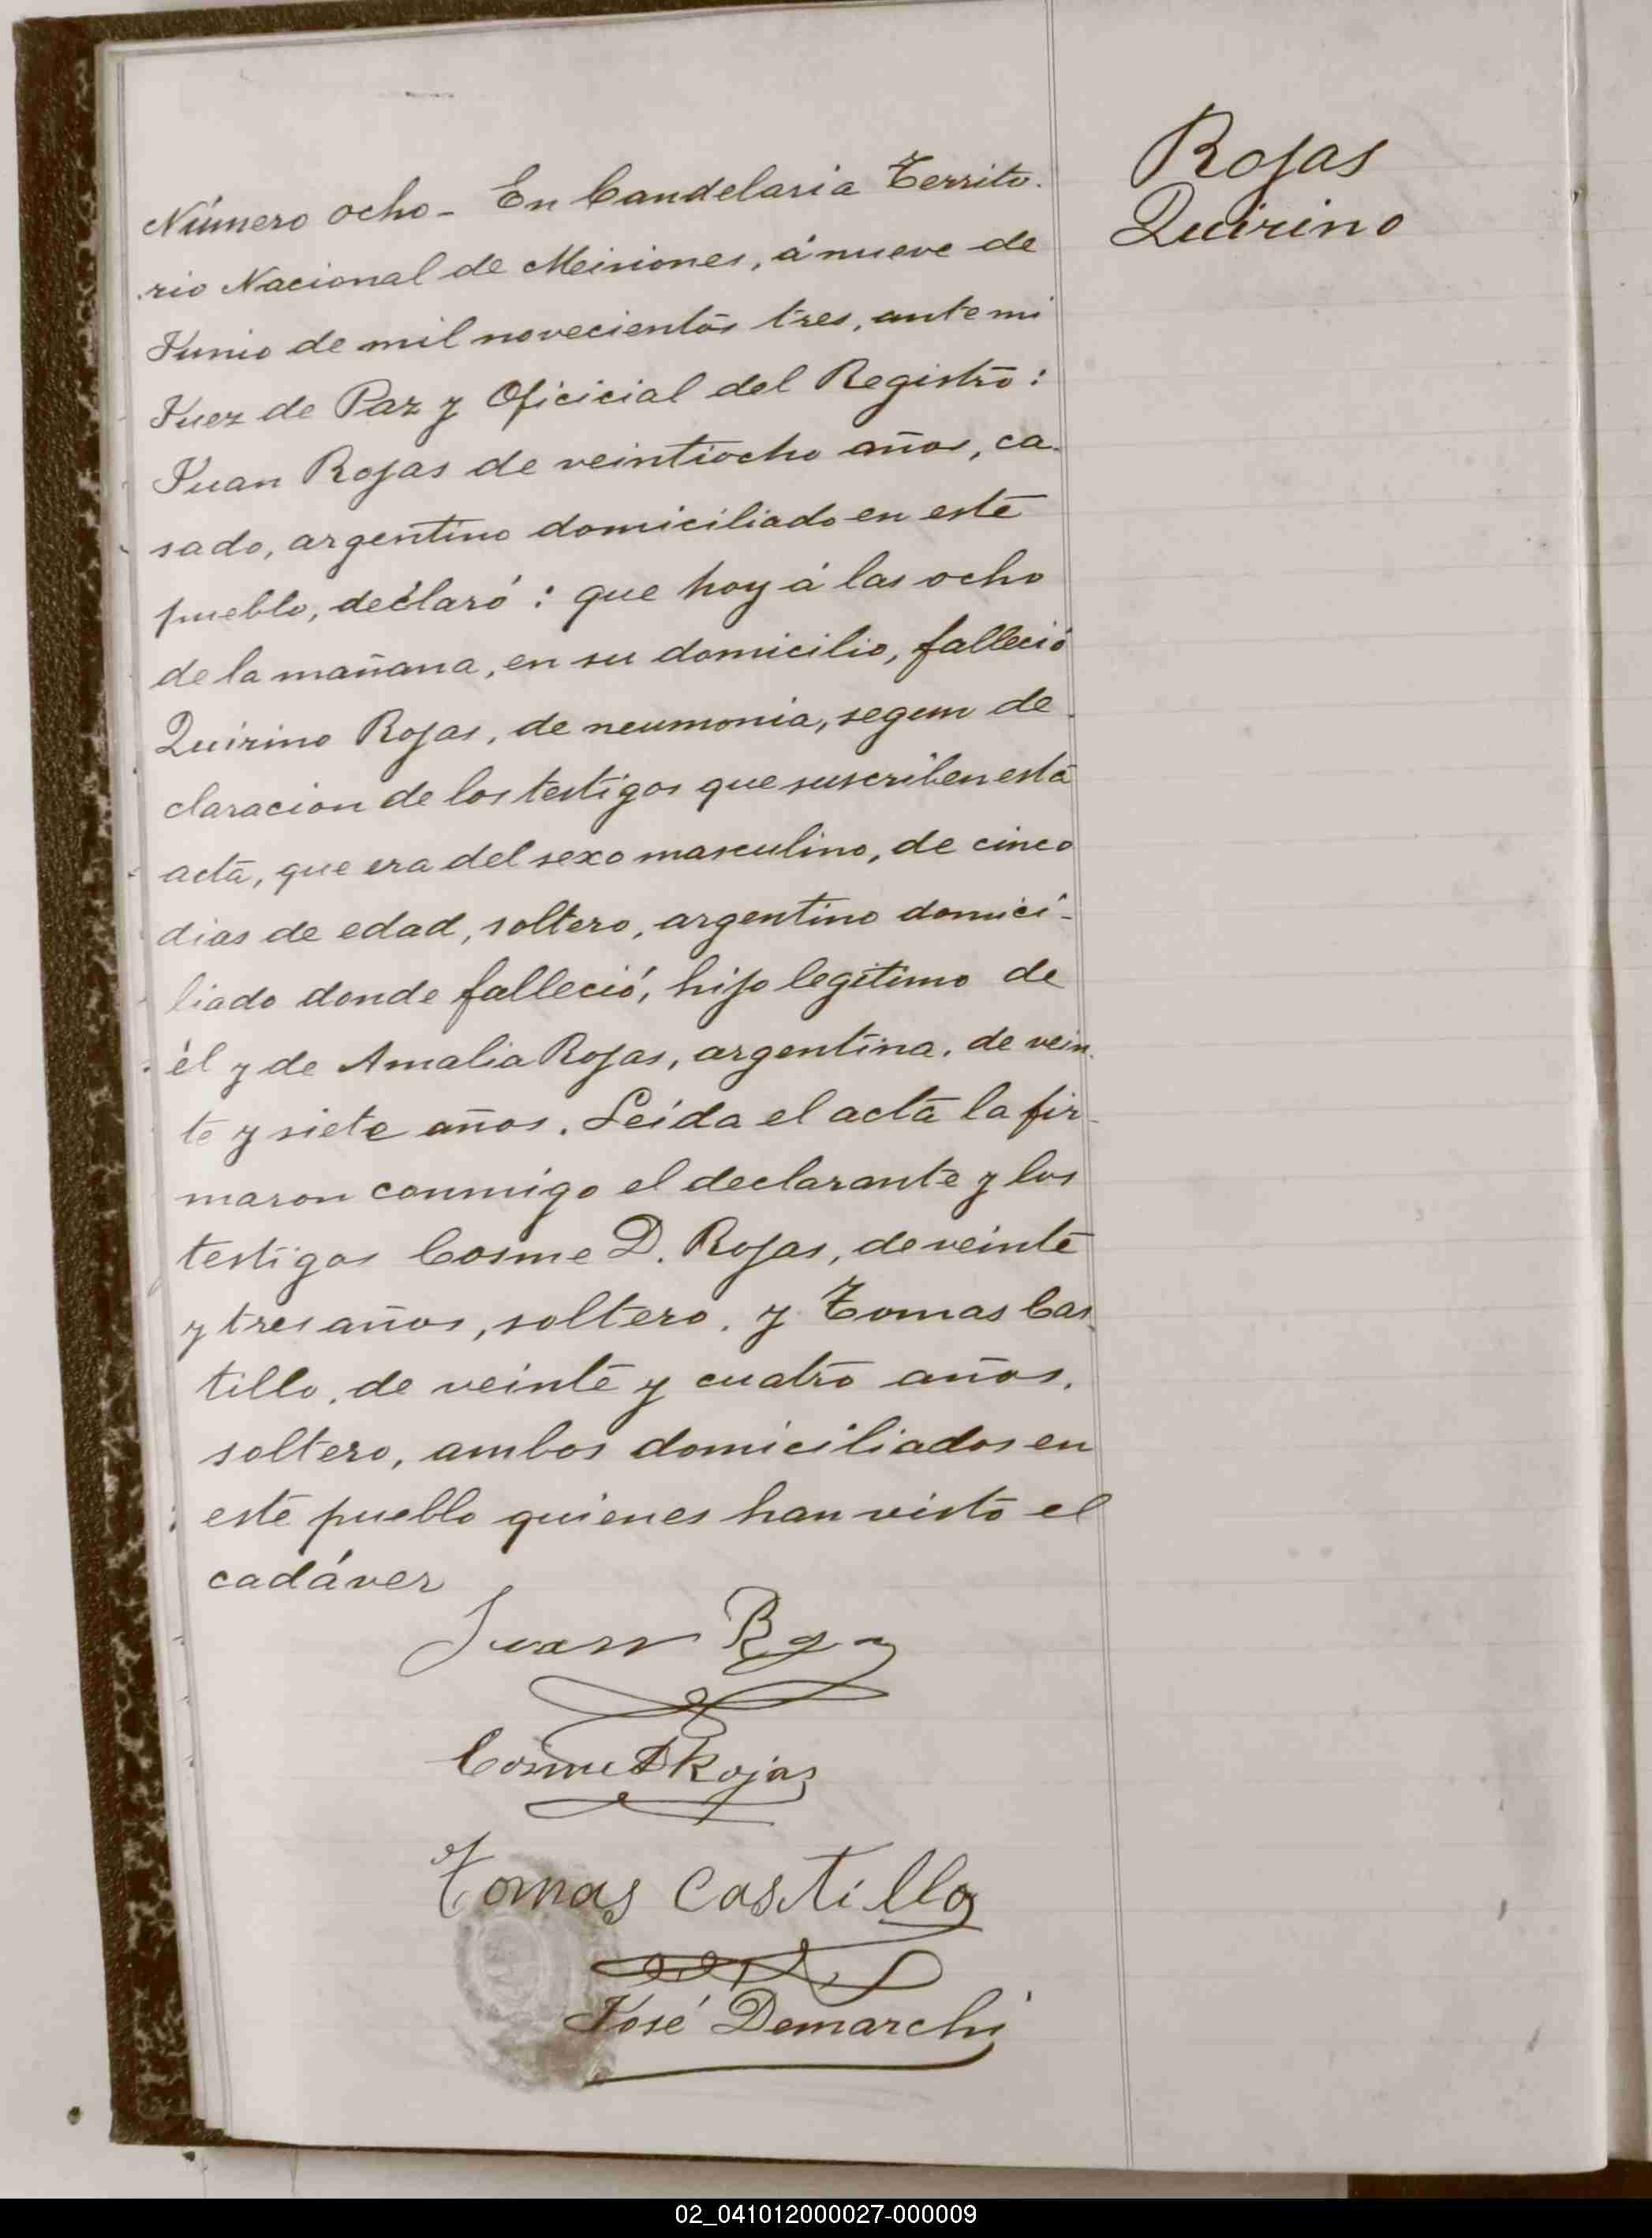 Rojas
Quirino
Número ocho - En Candelaria Territo-
rio Nacional de Meisiones, á nueve de
Junio de mil novecientos tres, ante mi
Juez de Paz y Oficicial del Registro:
Juan Rojas de veintiocho años, ca-
sado, argentino domiciliado en este
pueblo, declaró: que hoy á las ocho
de la mañana, en su domicilio, falleció
Quirino Rojas, de neumonia, segun de-
claracion de los testigos que suscriben esta
acta, que era del sexo masculino, de cinco
dias de edad, soltero, argentino domici-
liado donde falleció, hijo legitimo de
él y de Amalia Rojas, argentina, de vein-
te y siete años. Leida el acta la fir-
maron conmigo el declarante y los
testigos Cosme D. Rojas, de veinte
y tres años, soltero, y Tomas Cas-
tillo, de veinte y cuatro años,
soltero, ambos domiciliados en
este pueblo quienes han visto el
cadáver
Juan Rojas
Cosme D Rojas
Tomas Castillo
José Demarchi
02_041012000027-000009